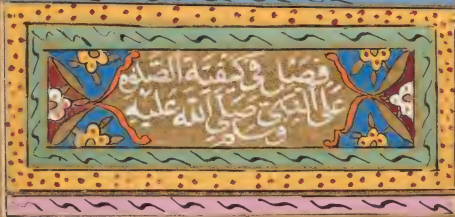 فصل في كيفية الصلوة
على النبي صلى الله عليه
وسلم